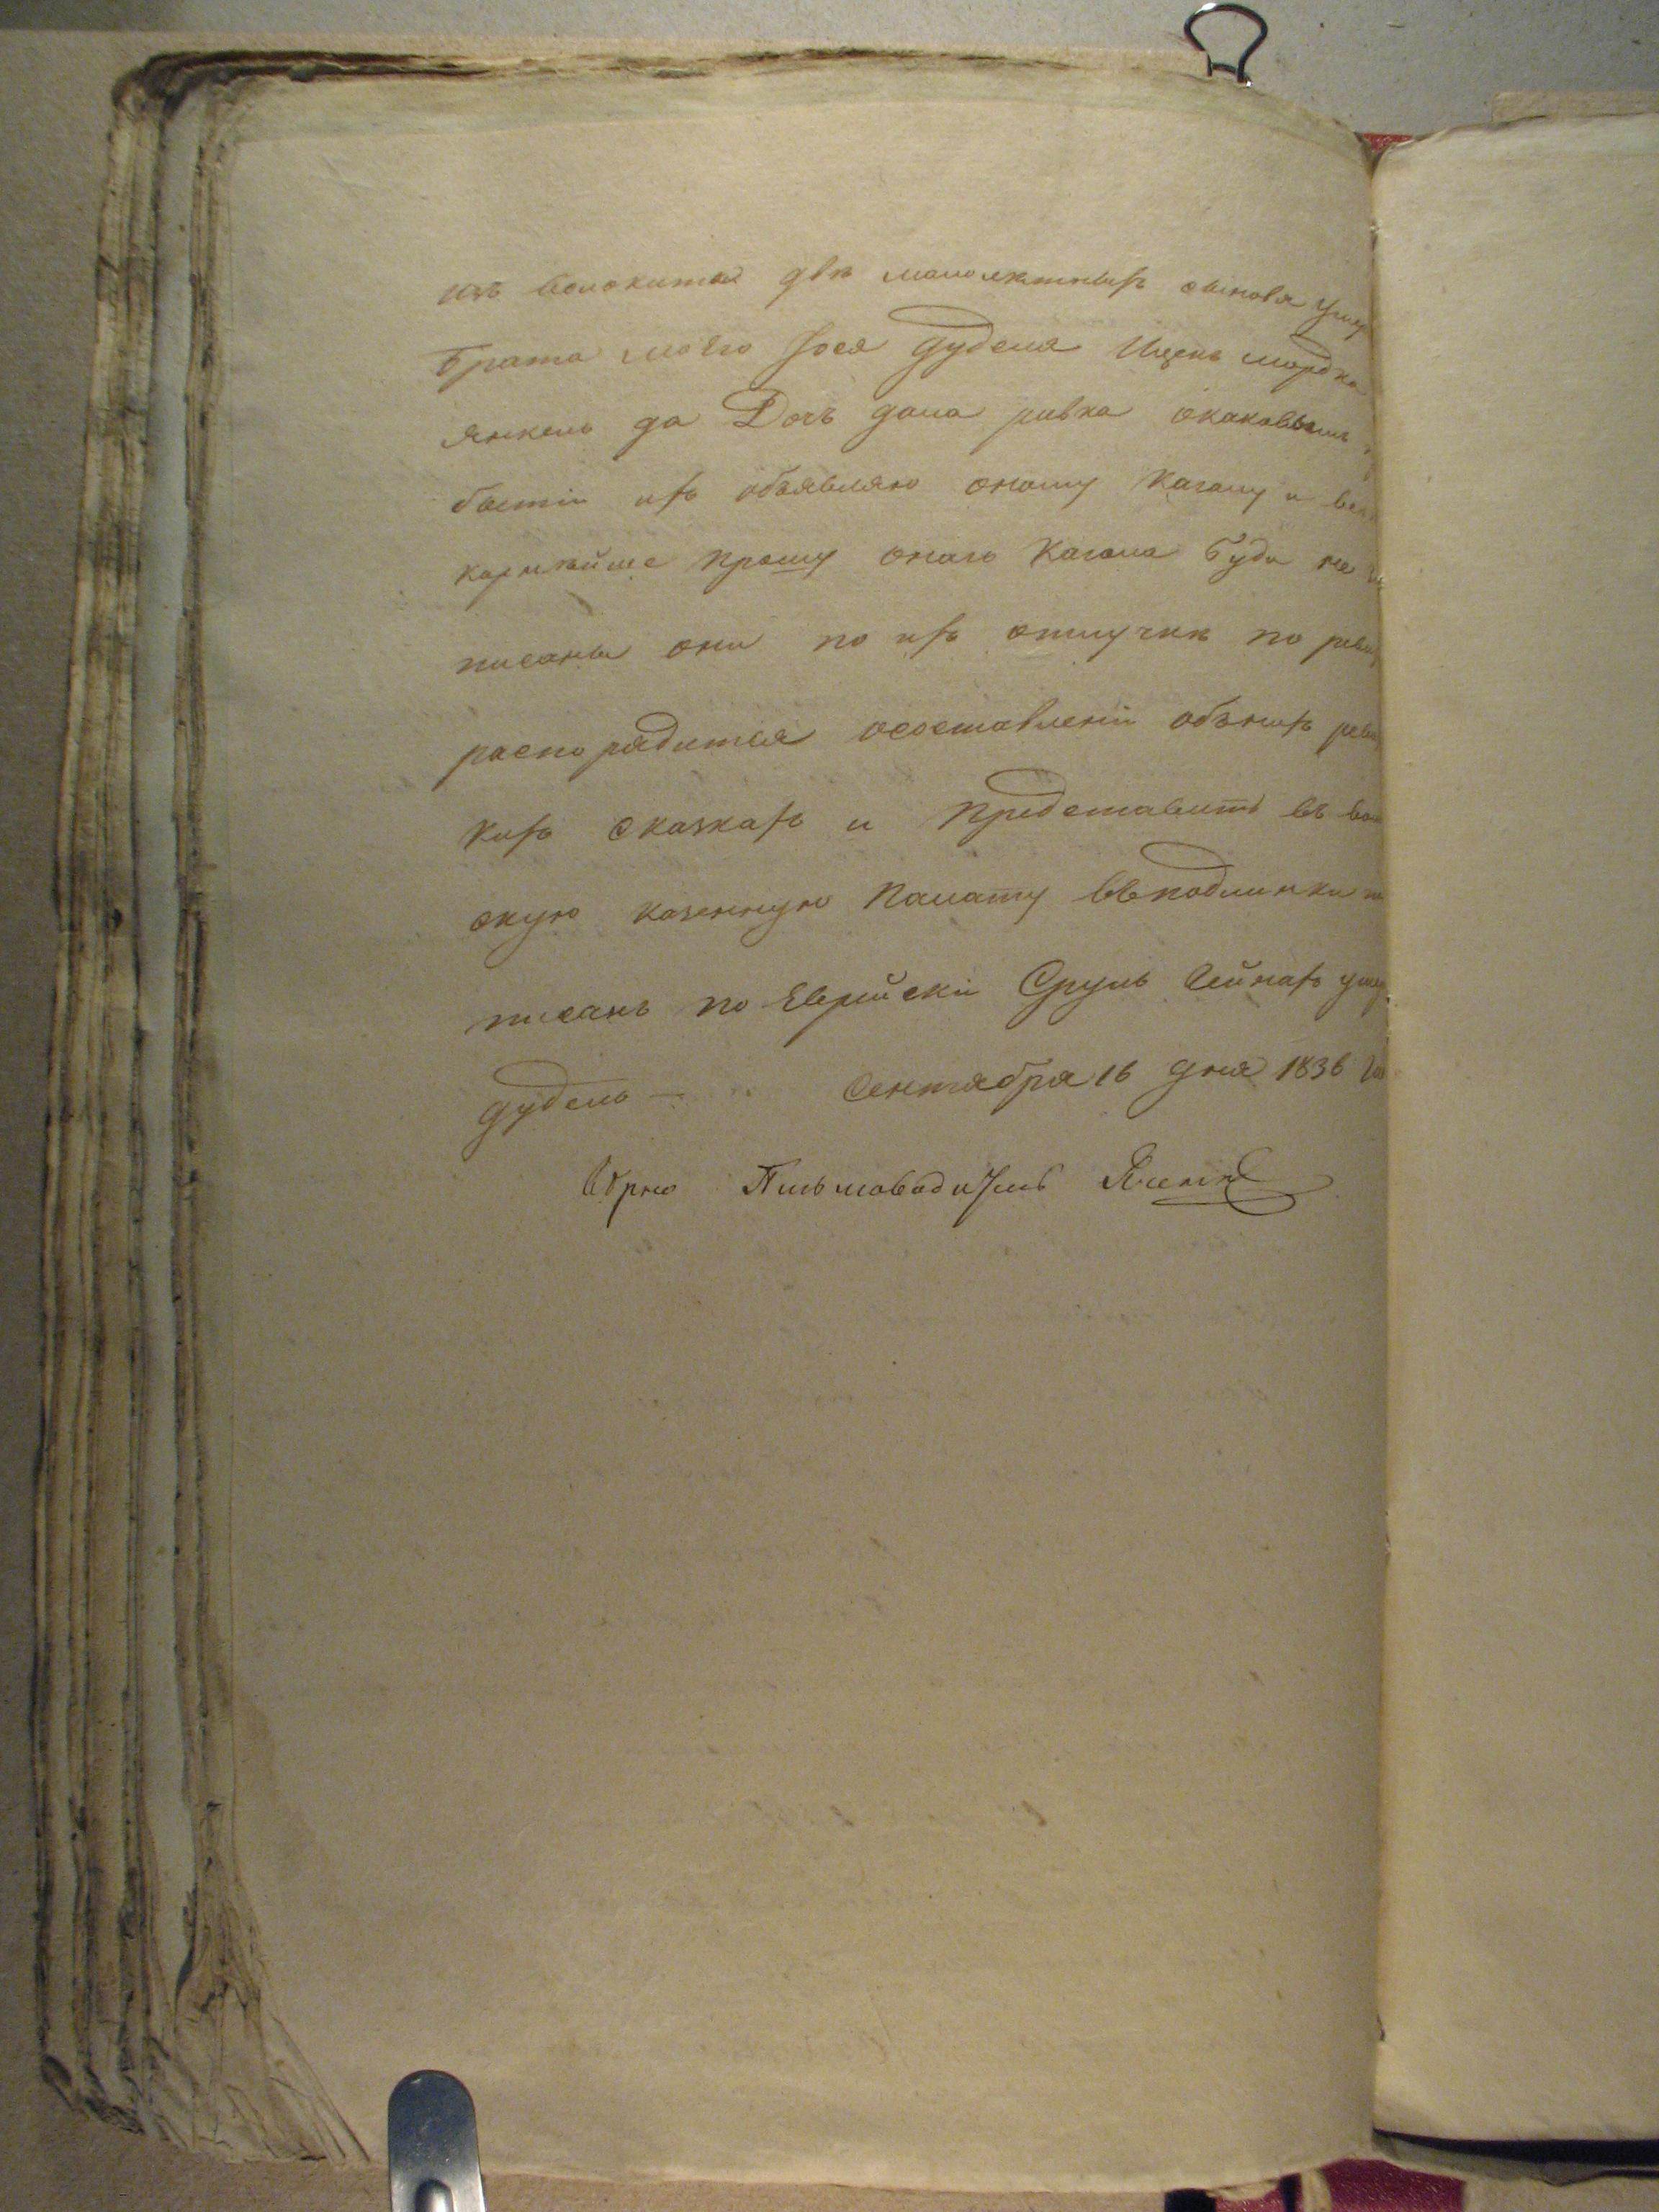 изъ двѣ малолѣтныхъ сынова умер
брата моего Іося Дубеля Ицекъ Мордко
Янкель да Дочъ дома ривка окаковымъ
бытіи ихъ объявляю оному Кагалу и все
корнѣйше прошу онаго Кагала буде не
писаны они по ихъ отлучкѣ по реви
распорядится осоставленіи обънихъ реви
кихъ сказкахъ и Представить въ вол
скую казенную Палату ввподлинки
писанъ по Еврейски Сруль Лейнахъ
Дубель — Сентября 16 дня 1836
Вѣрно Письмоводитель